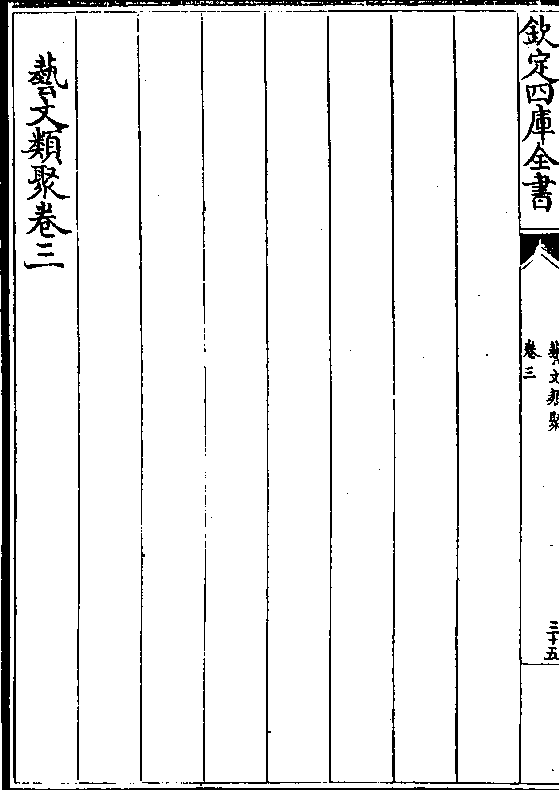 欽定四庫全書
藝文類聚
卷三
三十五
藝文類聚卷三